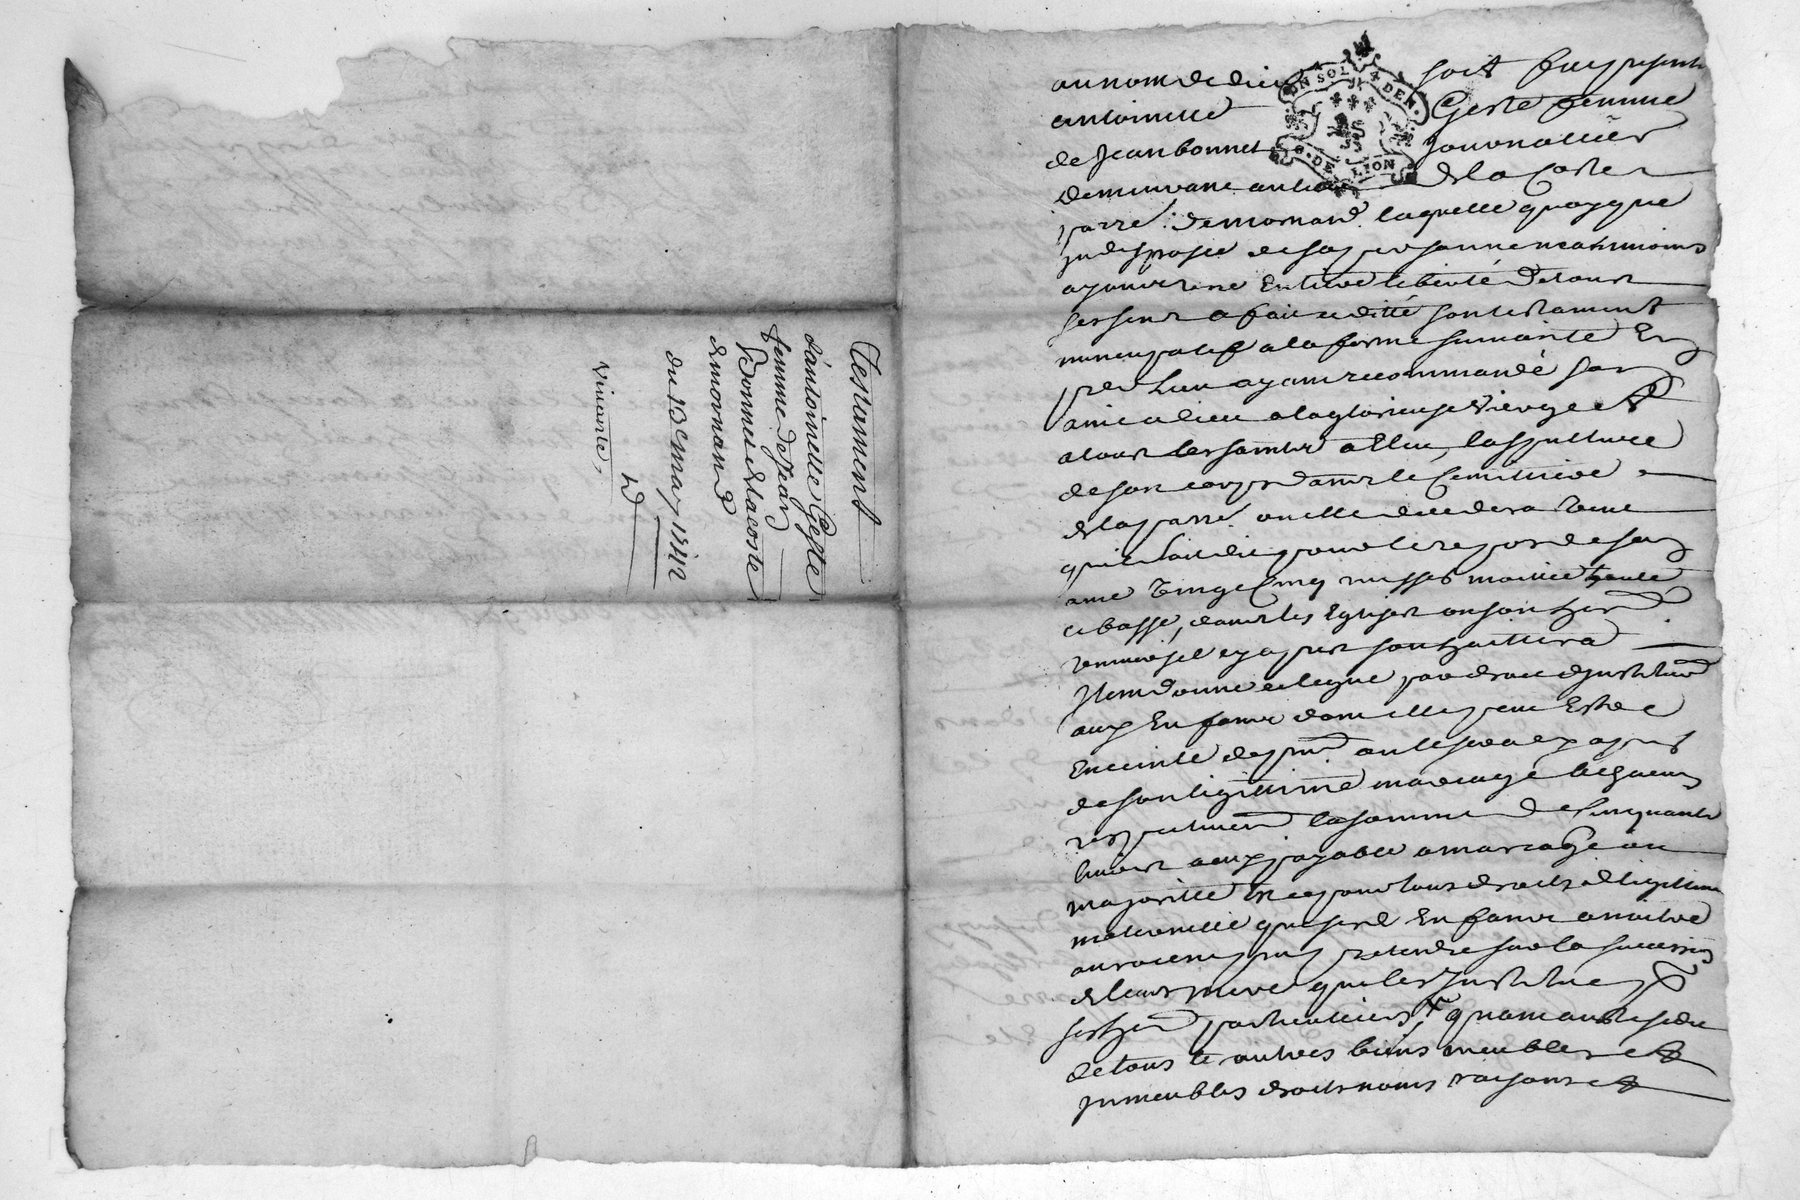 Testament
d'antoinette Geste
femme de Jean
Bonnet de la coste
de mornand
du 13e may 1742
Vivante,
au nom de dieu soit fut presente
antoinette Geste femme
de Jean bonnet journallier
demeurant au lieu de la Coste
parre. de mornand. laquelle quoyque
indisposée de sa personne neanmoins
ayant sene Entiere liberté de tous
ses sens a fait et ditté son testament
nuncupatif a la forme suivante En
pre. Lieu ayant recommandé son
ame a dieu a la glorieuse Vierge et
a tous les saints a Eleu la sepulture
de son corps dans le Cemetiere
de la parre. ou elle decedera Veut
qu'il soit dit pour le repos de son
ame Vingt Cinq messes moitié haute
et basse, dans les Eglises ou son her.
universel cy apres souhaittera
Item donne et legue par droit d'institution
aux Enfans dont elle peut Estre
Enceinte de pnt. ou le sera cy apres
de son legittime mariage a chacun
respectivement la somme de Cinquante
livres a eux payable a mariage ou
majorité et ce pour tous droits de legitime
maternelle que lesd. Enfans a naitre
auroient pu pretendre sur la succession
de leur mere qui les Institue pr
ses her. particuliers, quant au residu
de tous le autres biens meubles et
immeubles droits noms raisons et
UN SOL 4 DEN.
G. DE LION